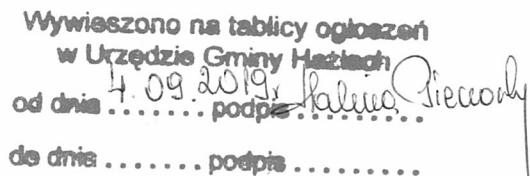 Wywieszono na tablicy ogłoszeń
w Urzędzie Gminy Hażlach
od dnia 4.09.2019r podpis Halina
do dnia ....... podpis .........